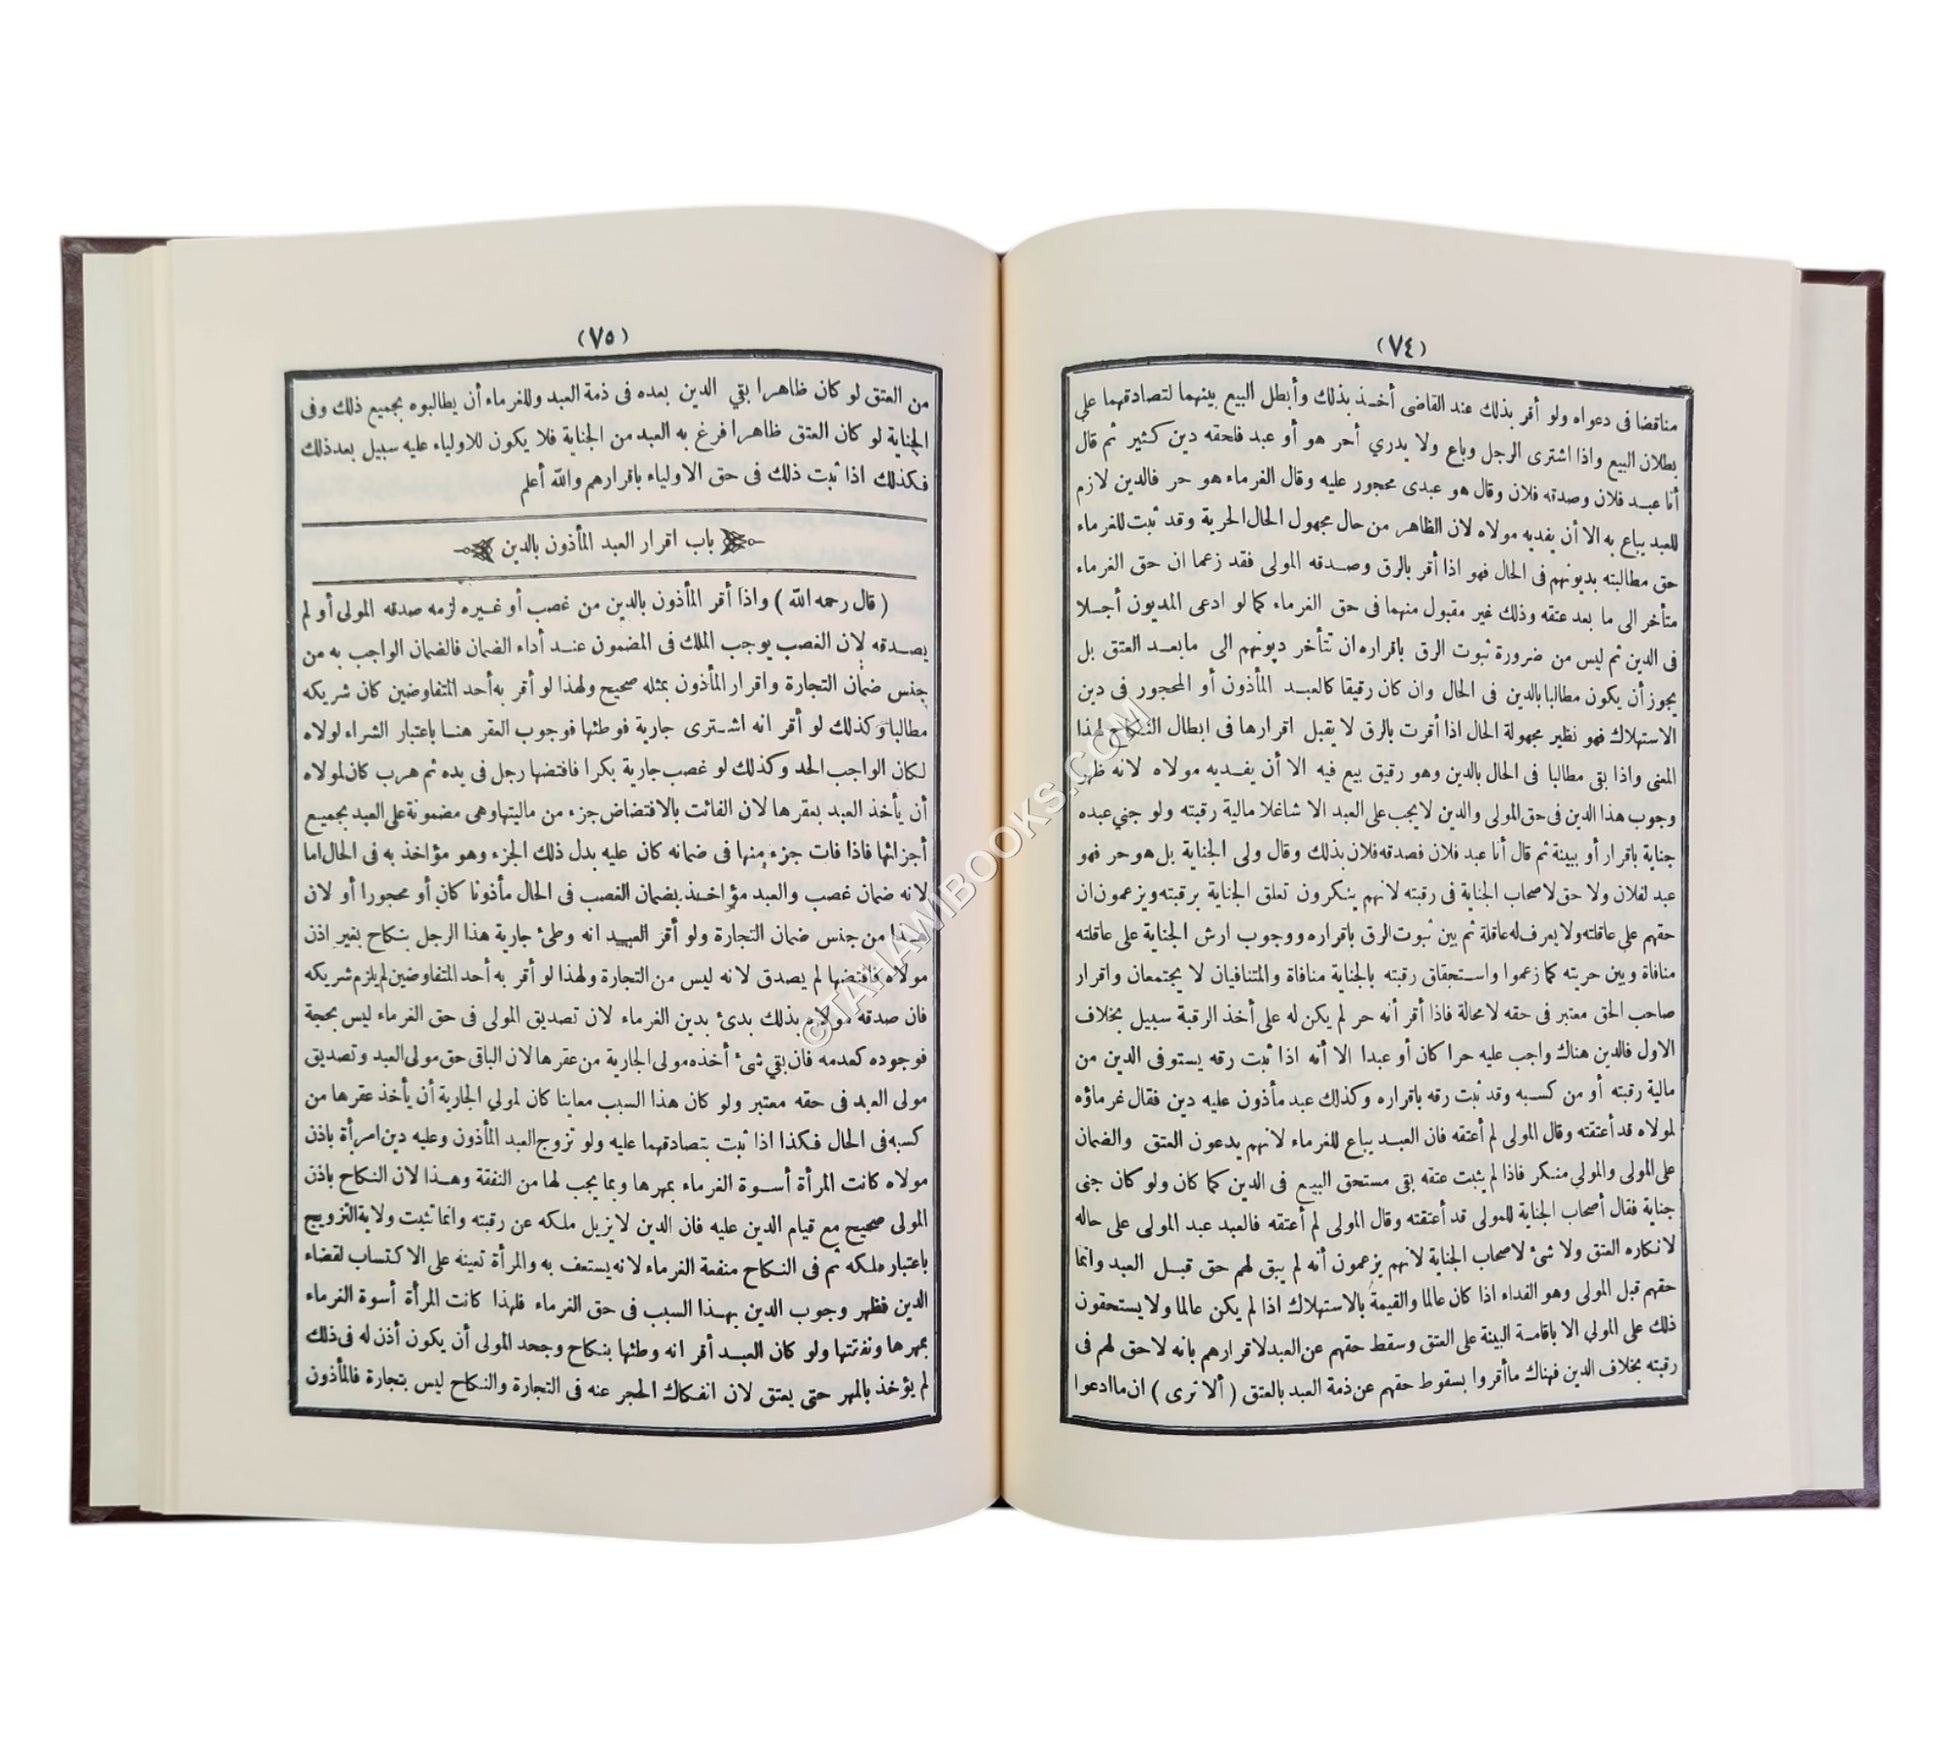 (٧٤)
مناقضا فى دعواه ولو أقر بذلك عند القاضى أخذ بذلك وأبطل البيع بينهما لتصادقهما على
بطلان البيع واذا اشترى الرجل وباع ولا يدري أحر هو أو عبد فلحقه دين كثير ثم قال
أنا عبد فلان وصدقه فلان وقال هو عبدى محجور عليه وقال الغرماء هو حر فالدين لازم
للعبد يباع به الا أن يفديه مولاه لان الظاهر من حال مجهول الحال الحرية وقد ثبت للغرماء
حق مطالبته بديونهم فى الحال فهو اذا أقر بالرق وصدقه المولى فقد زعما ان حق الغرماء
متأخر الى ما بعد عتقه وذلك غير مقبول منهما فى حق الغرماء كما لو ادعى المديون أجلا
فى الدين ثم ليس من ضرورة ثبوت الرق باقراره ان تتأخر ديونهم الى مابعد العتق بل
يجوز أن يكون مطالبا بالدين فى الحال وان كان رقيقا كالعبد المأذون أو المحجور فى دين
الاستهلاك فهو نظير مجهولة الحال اذا أقرت بالرق لا يقبل اقرارها فى ابطال النكاح لهذا
المعنى واذا بقى مطالبا فى الحال بالدين وهو رقيق بيع فيه الا أن يفديه مولاه لانه ظهر
وجوب هذا الدين فى حق المولى والدين لا يجب على العبد الا شاغلا مالية رقبته ولو جني عبده
جناية باقرار أو ببينة ثم قال أنا عبد فلان فصدقه فلان بذلك وقال ولى الجناية بل هو حر فهو
عبد لفلان ولا حق لاصحاب الجناية فى رقبته لانهم ينكرون تعلق الجناية برقبته ويزعمون ان
حقهم على عاقلته ولا يعرف له عاقلة ثم بين ثبوت الرق باقراره ووجوب ارش الجناية على عاقلته
منافاة وبين حريته كما زعموا واستحقاق رقبته بالجناية منافاة والمتنافيان لا يجتمعان واقرار
صاحب الحق معتبر فى حقه لا محالة فاذا أقر أنه حر لم يكن له على أخذ الرقبة سبيل بخلاف
الاول فالدين هناك واجب عليه حرا كان أو عبدا الا أنه اذا ثبت رقه يستوفى الدين من
مالية رقبته أو من كسبه وقد ثبت رقه باقراره وكذلك عبد مأذون عليه دين فقال غرماؤه
لمولاه قد أعتقته وقال المولى لم أعتقه فان العبد يباع للغرماء لانهم يدعون العتق والضمان
على المولى والمولي منكر فاذا لم يثبت عتقه بقى مستحق البيع فى الدين كما كان ولو كان جنى
جناية فقال أصحاب الجناية للمولى قد أعتقته وقال المولى لم أعتقه فالعبد عبد المولى على حاله
لانكاره العتق ولا شئ لاصحاب الجناية لانهم يزعمون أنه لم يبق لهم حق قبل العبد وانما
حقهم قبل المولى وهو الفداء اذا كان عالما والقيمة بالاستهلاك اذا لم يكن عالما ولا يستحقون
ذلك على المولي الا باقامة البينة على العتق وسقط حقهم عن العبد لاقرارهم بانه لا حق لهم فى
رقبته بخلاف الدين فهناك ما أقروا بسقوط حقهم عن ذمة العبد بالعتق ( ألا ترى ) ان ما ادعوا
(٧٥)
من العتق لو كان ظاهرا بقي الدين بعده فى ذمة العبد وللغرماء أن يطالبوه بجميع ذلك وفى
الجناية لو كان العتق ظاهرا فرغ به العبد من الجناية فلا يكون للاولياء عليه سبيل بعد ذلك
فكذلك اذا ثبت ذلك فى حق الاولياء باقرارهم والله أعلم
باب اقرار العبد المأذون بالدين
( قال رحمه الله ) واذا أقر المأذون بالدين من غصب أو غيره لزمه صدقه المولى أو لم
يصدقه لان الغصب يوجب الملك فى المضمون عند أداء الضمان فالضمان الواجب به من
جنس ضمان التجارة واقرار المأذون بمثله صحيح ولهذا لو أقر به أحد المتفاوضين كان شريكه
مطالبا وكذلك لو أقر انه اشترى جارية فوطئها فوجوب العقر هنا باعتبار الشراء لولاه
لكان الواجب الحد وكذلك لو غصب جارية بكرا فافتضها رجل فى يده ثم هرب كان لمولاه
أن يأخذ العبد بعقرها لان الفائت بالافتضاض جزء من ماليتها وهى مضمونة على العبد بجميع
أجزائها فاذا فات جزء منها فى ضمانه كان عليه بدل ذلك الجزء وهو مؤاخذ به فى الحال اما
لانه ضمان غصب والعبد مؤاخذ بضمان الغصب فى الحال مأذونا كان أو محجورا أو لان
هذا من جنس ضمان التجارة ولو أقر العبد انه وطئ جارية هذا الرجل بنكاح بغير اذن
مولاه فافتضها لم يصدق لانه ليس من التجارة ولهذا لو أقر به أحد المتفاوضين لم يلزم شريكه
فان صدقه مولاه بذلك بدئ بدين الغرماء لان تصديق المولى فى حق الغرماء ليس بحجة
فوجوده كعدمه فان بقي شئ أخذه مولى الجارية من عقرها لان الباقى حق مولى العبد وتصديق
مولى العبد فى حقه معتبر ولو كان هذا السبب معاينا كان لمولي الجارية أن يأخذ عقرها من
كسبه فى الحال فكذا اذا ثبت بتصادقهما عليه ولو تزوج العبد المأذون وعليه دين امرأة باذن
مولاه كانت المرأة أسوة الغرماء بمهرها وبما يجب لها من النفقة وهذا لان النكاح باذن
المولى صحيح مع قيام الدين عليه فان الدين لا يزيل ملكه عن رقبته وانما تثبت ولاية التزويج
باعتبار ملكه ثم فى النكاح منفعة الغرماء لانه يستعف به والمرأة تعينه على الاكتساب لقضاء
الدين فظهر وجوب الدين بهذا السبب فى حق الغرماء فلهذا كانت المرأة أسوة الغرماء
بمهرها ونفقتها ولو كان العبد أقر انه وطئها بنكاح وجحد المولى أن يكون أذن له فى ذلك
لم يؤخذ بالمهر حتى يعتق لان انفكاك الحجر عنه فى التجارة والنكاح ليس بتجارة فالمأذون
©TAHAWIBOOKS.COM